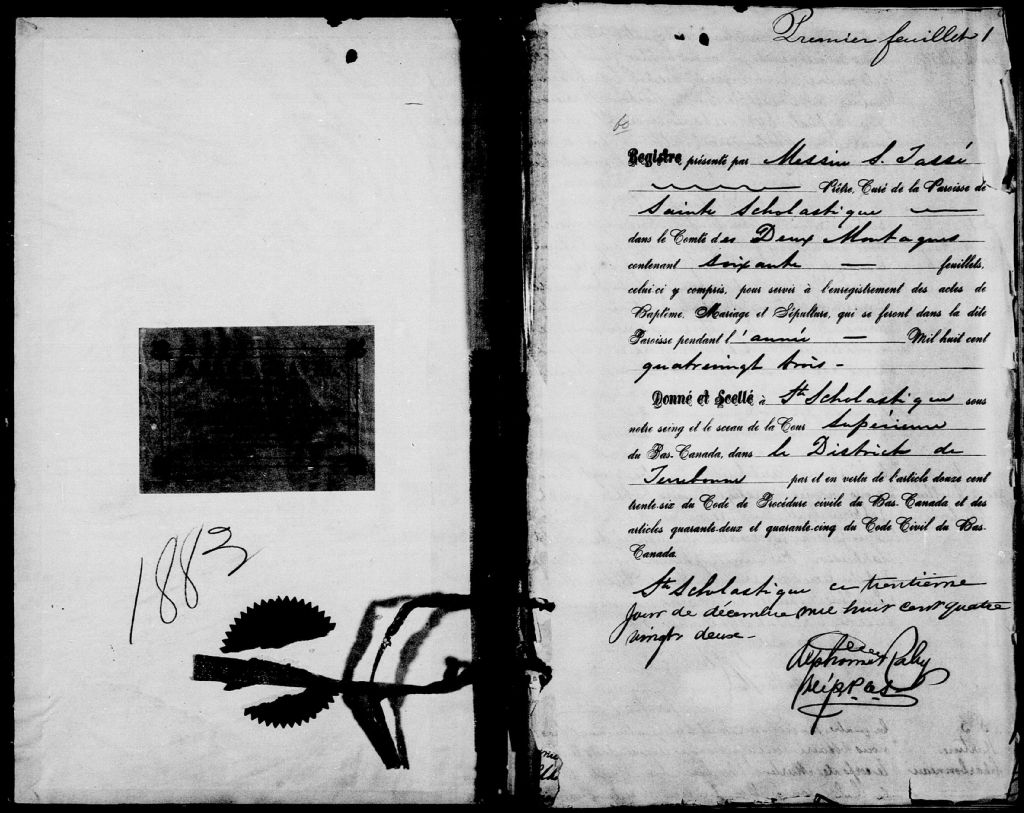 1883
Premier feuillet 1
60
Registre présenté par Messire S. Tassé
Prêtre, Curé de la Paroisse de
Sainte Scholastique
dans le Comté des Deux Montagnes
contenant soixante — feuillets,
celui-ci y compris, pour servir à l'enregistrement des actes de
Baptême, Mariage et Sépulture, qui se feront dans la dite
Paroisse pendant l'année — Mil huit cent
quatrevingt trois -
Donné et Scellé à Ste Scholastique sous
notre seing et le sceau de la Cour Supérieure
du Bas-Canada, dans le District de
Terrebonne par et en vertu de l'article douze cent
trente-six du Code de Procédure civile du Bas-Canada et des
articles quarante-deux et quarante-cinq du Code Civil du Bas-
Canada.
Ste Scholastique ce trentième
jour de décembre mil huit cent quatre
vingt deux -